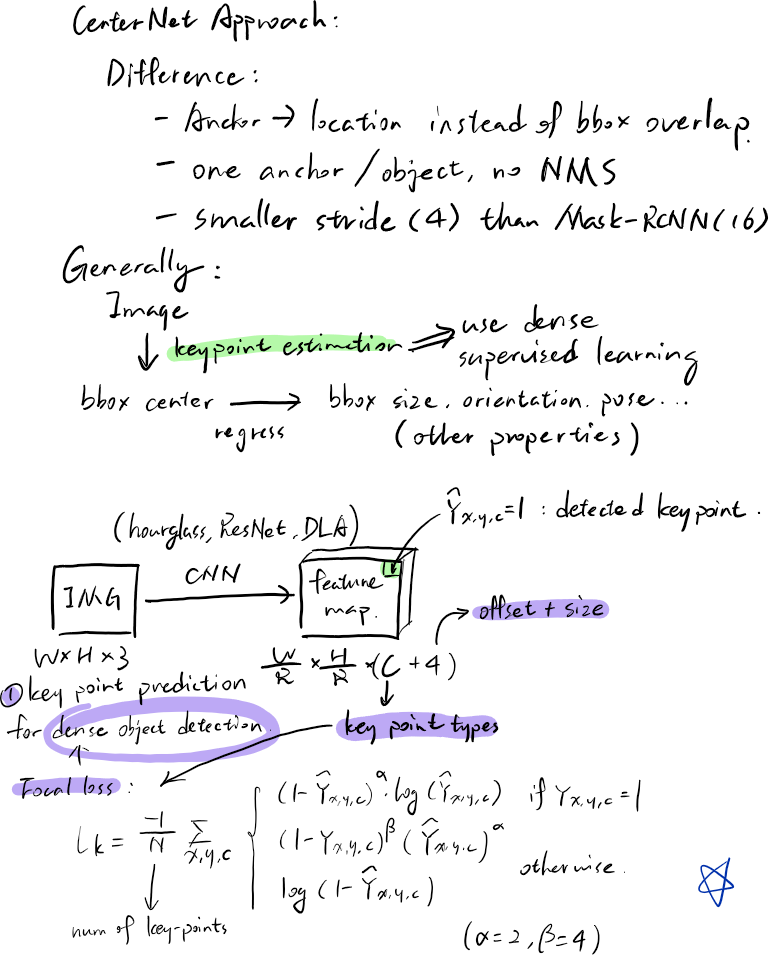 CenterNet Approach:
Difference:
- Anchor → location instead of bbox overlap.
- one anchor/object, no NMS
- smaller stride (4) than Mask-RCNN(16)
Generally:
Image
↓ keypoint estimation ⇒ use dense
supervised learning
bbox center → bbox size, orientation, pose...
regress (other properties)
Ŷx,y,c=1 : detected keypoint.
(hourglass, ResNet, DLA)
CNN
IMG
feature
map.
offset + size
W×H×3
W/R × H/R × (C + 4)
① key point prediction
for dense object detection.
key point types
Focal loss :
Lk = -1/N Σx,y,c { (1-Ŷx,y,c)^α · log(Ŷx,y,c) if Yx,y,c = 1
(1-Yx,y,c)^β (Ŷx,y,c)^α
log(1-Ŷx,y,c) otherwise.
num of key-points
(α=2, β=4)